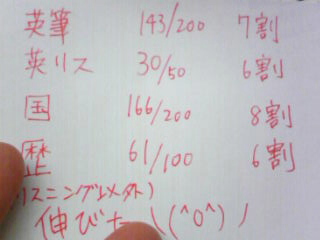 英筆 143/200 7割
英リス 30/50 6割
国 166/200 8割
歴 61/100 6割
リスニング以外)
伸びた \(^o^)/